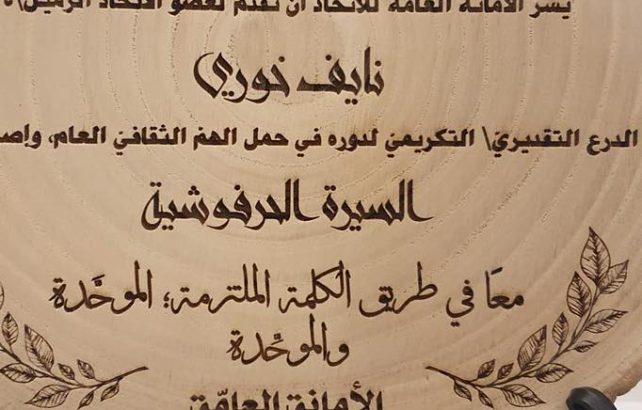 يسر الأمانة العامة للاتحاد أن تقدم لعضو الاتحاد الزميل\ة
نايف خوري
الدرع التقديريّ\ التكريميّ لدوره في حمل الهمّ الثقافيّ العام، وإصد
السيرة الحرفوشية
معًا في طريق الكلمة الملتزمة؛ الموحَّدة
والموحِّدة
الأمانة العامّة